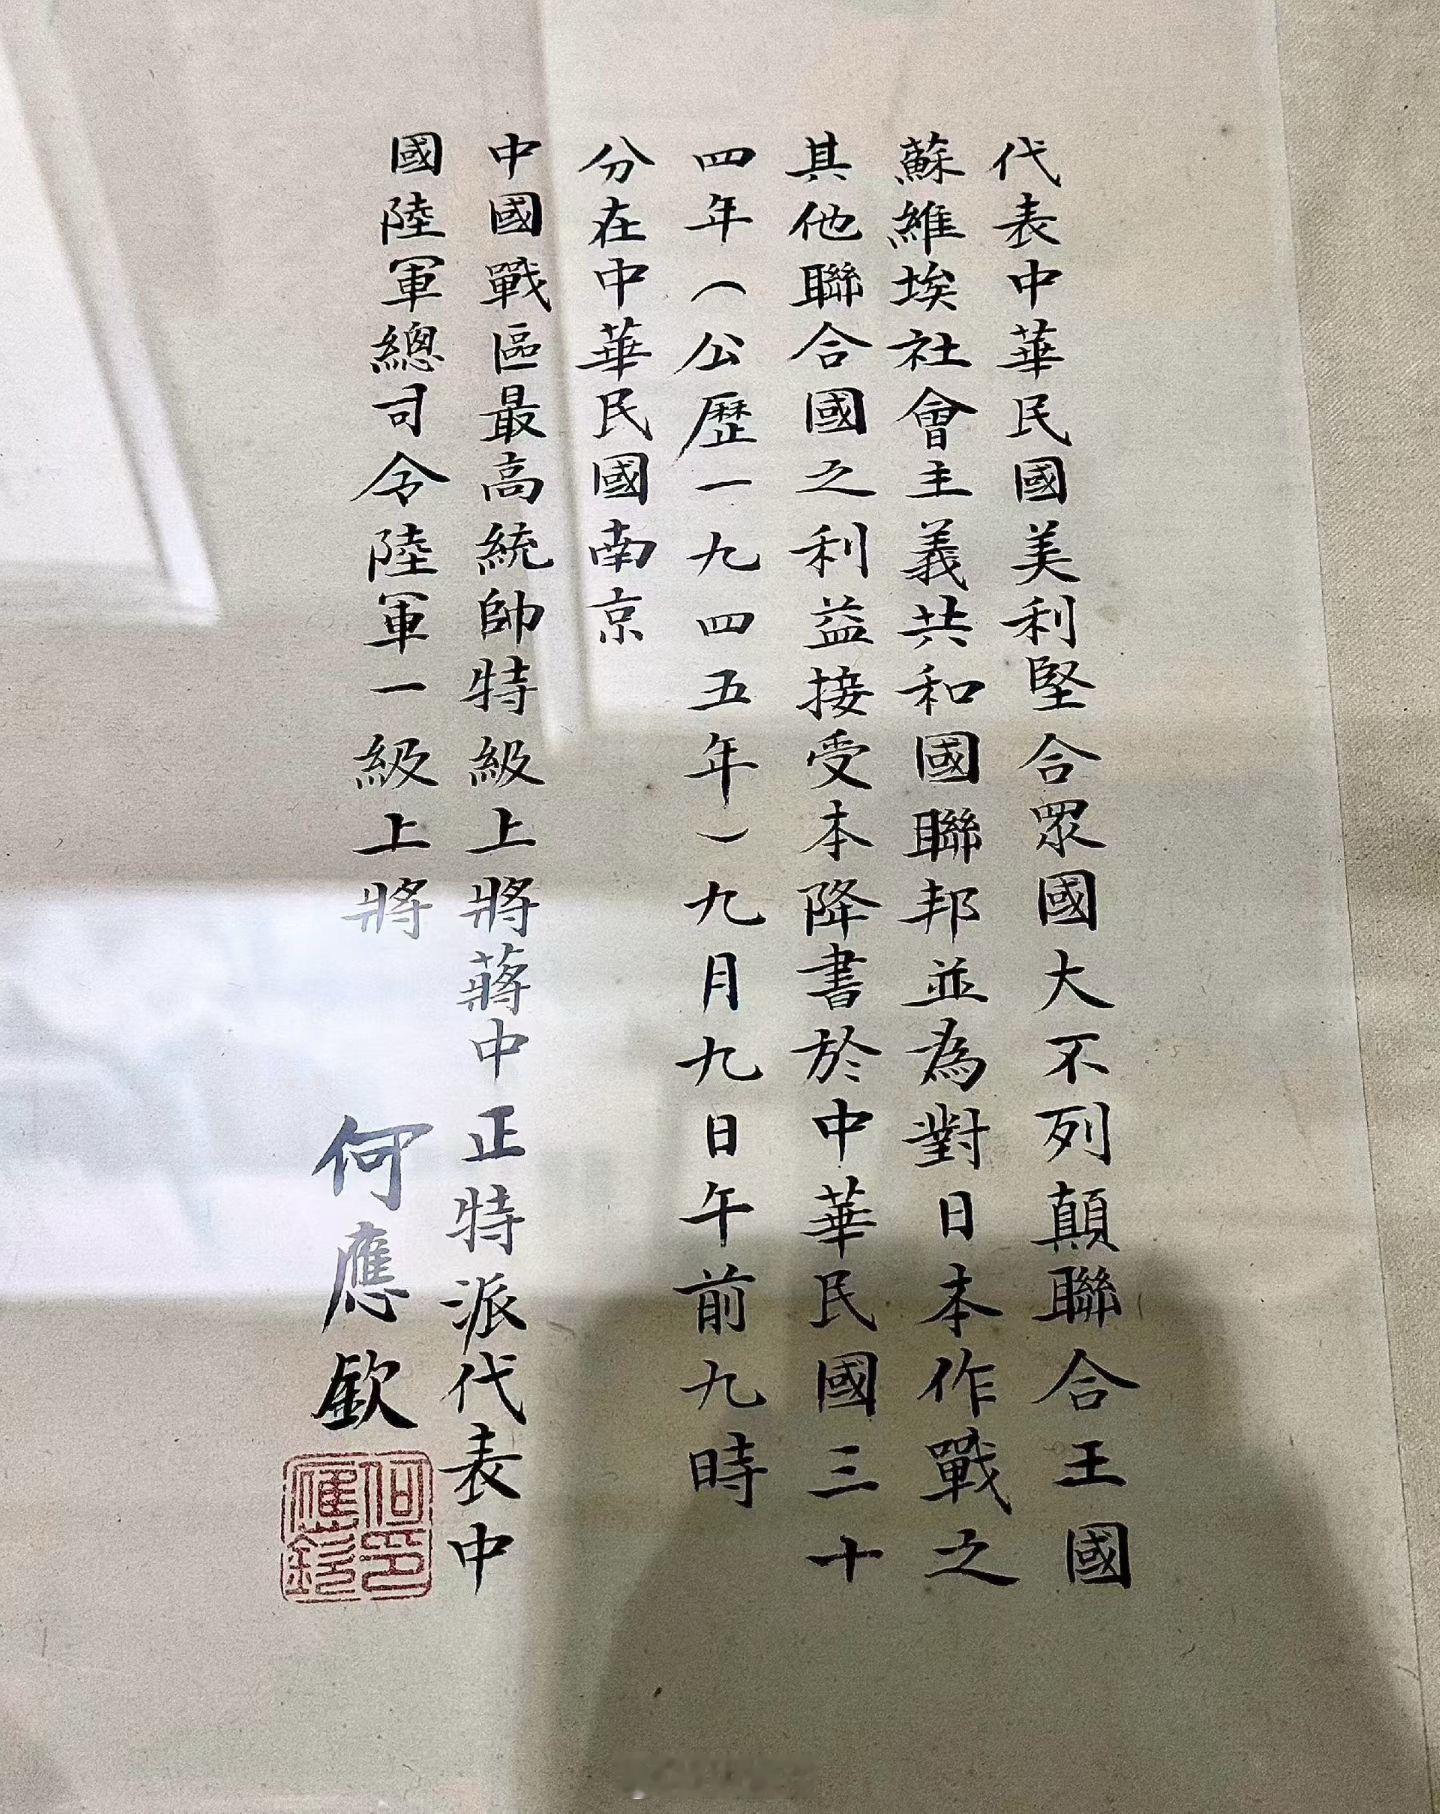 代表中華民國美利堅合眾國大不列顛聯合王國
蘇維埃社會主義共和國聯邦並為對日本作戰之
其他聯合國之利益接受本降書於中華民國三十
四年(公歷一九四五年)九月九日午前九時
分在中華民國南京
中國戰區最高統帥特級上將蔣中正特派代表中
國陸軍總司令陸軍一級上將
何應欽
何應欽印